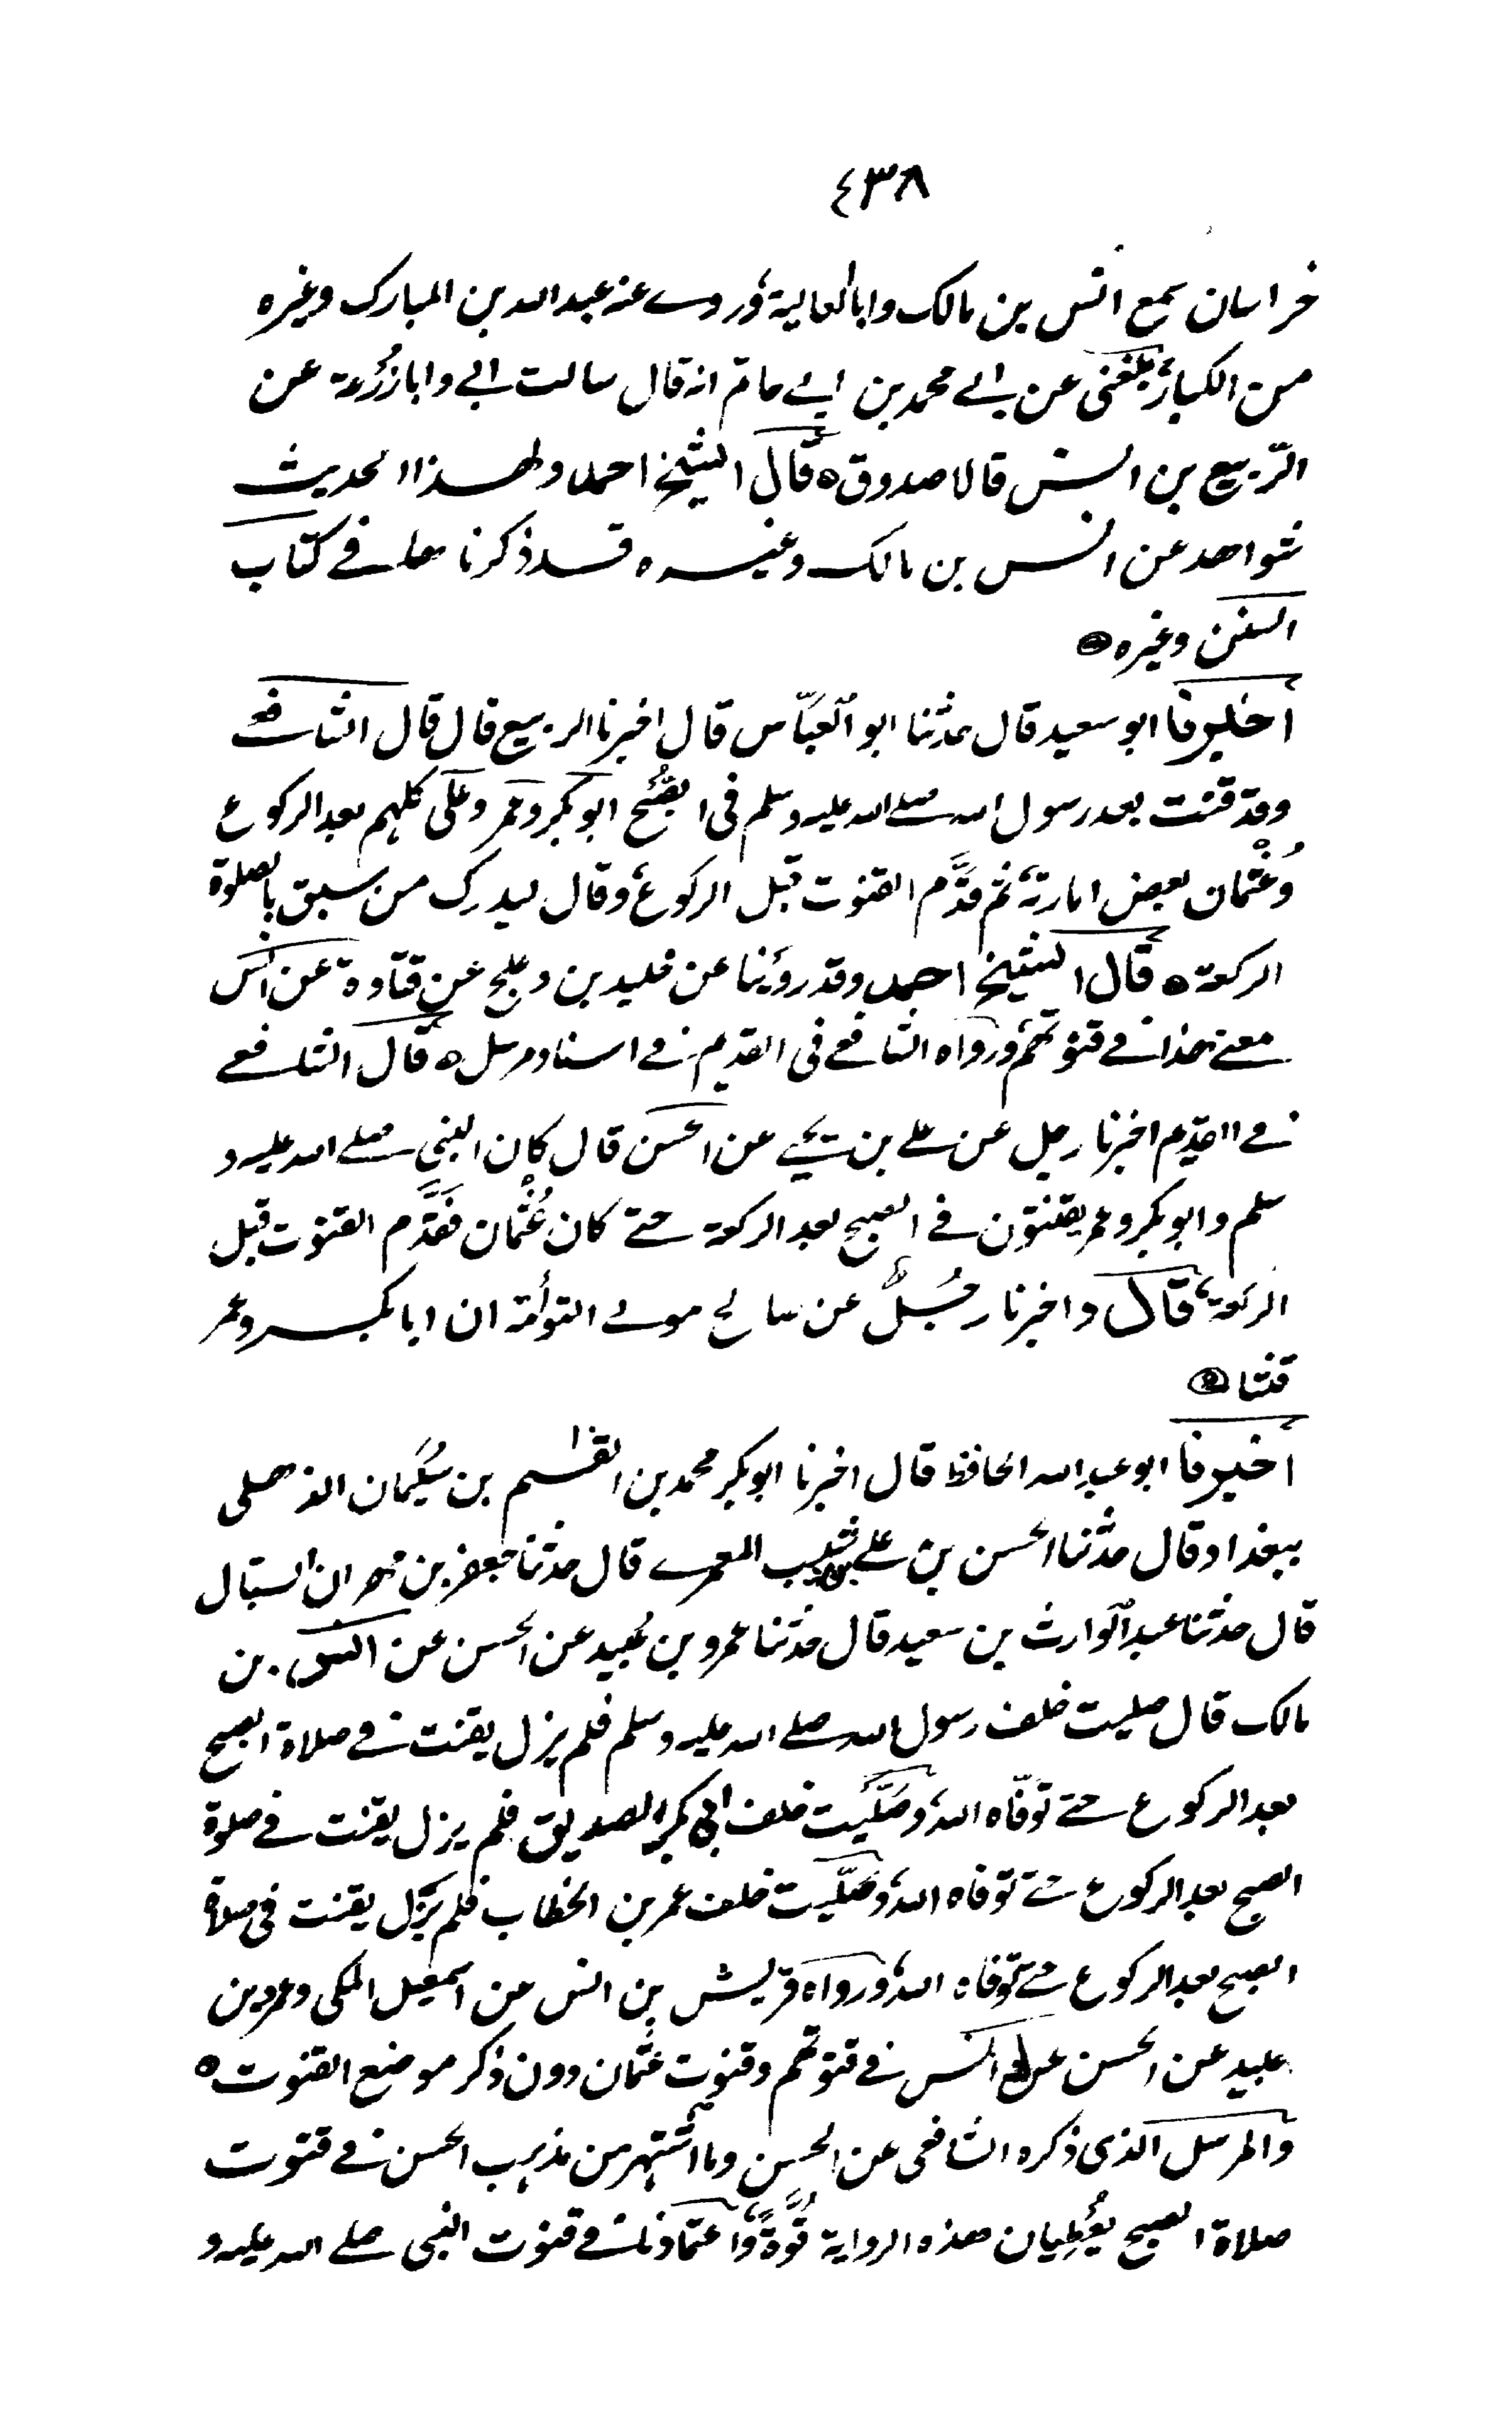 ٤٣٨
خراسان سمع انس بن مالك وابا العالية، وروى عنه عبد الله بن المبارك وغيره
من الكبار، بلغني عن ابي محمد بن ابي حاتم انه قال سالت ابي وابا زُرعة عن
الرّبيع بن انس قالا صدوق ه قال الشيخ احمد ولهذا الحديث
شواهد عن انس بن مالك وغيره قد ذكرناها في كتاب
السنن وغيره
اخبرنا ابو سعيد قال حدثنا ابو العبّاس قال اخبرنا الربيع قال قال الشافعي
وقد قنت بعد رسول الله صلى الله عليه وسلم في الصُّبح ابو بكر وعمر وعلي كلهم بعد الركوع
وعُثْمان بعض امارته، ثم قدَّم القنوت قبل الركوع، وقال ليدرك من سبق بالصلوة
الركعة ه قال الشيخ احمد وقد روينا عن خليد بن دعلج عن قتادة عن انس
معنى هذا في قنوتهم، ورواه الشافعي في القديم في اسناد مرسل ه قال الشافعي
في القديم اخبرنا رجل عن علي بن يحيى عن الحسن قال كان النبي صلى الله عليه و
سلم وابو بكر وعمر يقنتون في الصبح بعد الركعة حتى كان عُثْمان فقدَّم القنوت قبل
الركعة، قال واخبرنا رجُلٌ عن صالح مولى التوأمة ان ابا بكر وعمر
قنتا
اخبرنا ابو عبد الله الحافظ قال اخبرنا ابو بكر محمد بن القاسم بن سُليمان الذهلي
ببغداد قال حدثنا الحسن بن علي بن شبيب المعمري قال حدثنا جعفر بن مهران السبال
قال حدثنا عبد الوارث بن سعيد قال حدثنا عمرو بن عُبيد عن الحسن عن انس بن
مالك قال صليت خلف رسول الله صلى الله عليه وسلم فلم يزل يقنت في صلاة الصبح
بعد الركوع حتى توفّاه الله، وصَلَّيت خلف ابي بكر الصديق فلم يزل يقنت في صلوة
الصبح بعد الركوع حتى توفاه الله، وصَلَّيت خلف عمر بن الخطاب فلم يزل يقنت في صلاة
الصبح بعد الركوع حتى توفاه الله، ورواه قريش بن انس عن اسمعيل المكي وعمرو بن
عبيد عن الحسن عن انس في قنوتهم وقنوت عثمان دون ذكر موضع القنوت ه
والمرسل الذي ذكره الشافعي عن الحسن وما اشتهر من مذهب الحسن في قنوت
صلاة الصبح يُعْطِيان هذه الرواية قُوَّةً، واعتمادنا في قنوت النبي صلى الله عليه و